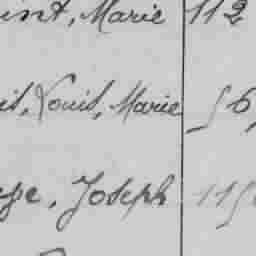 int, Marie 112
is, Louis, Marie 56
ge, Joseph 115